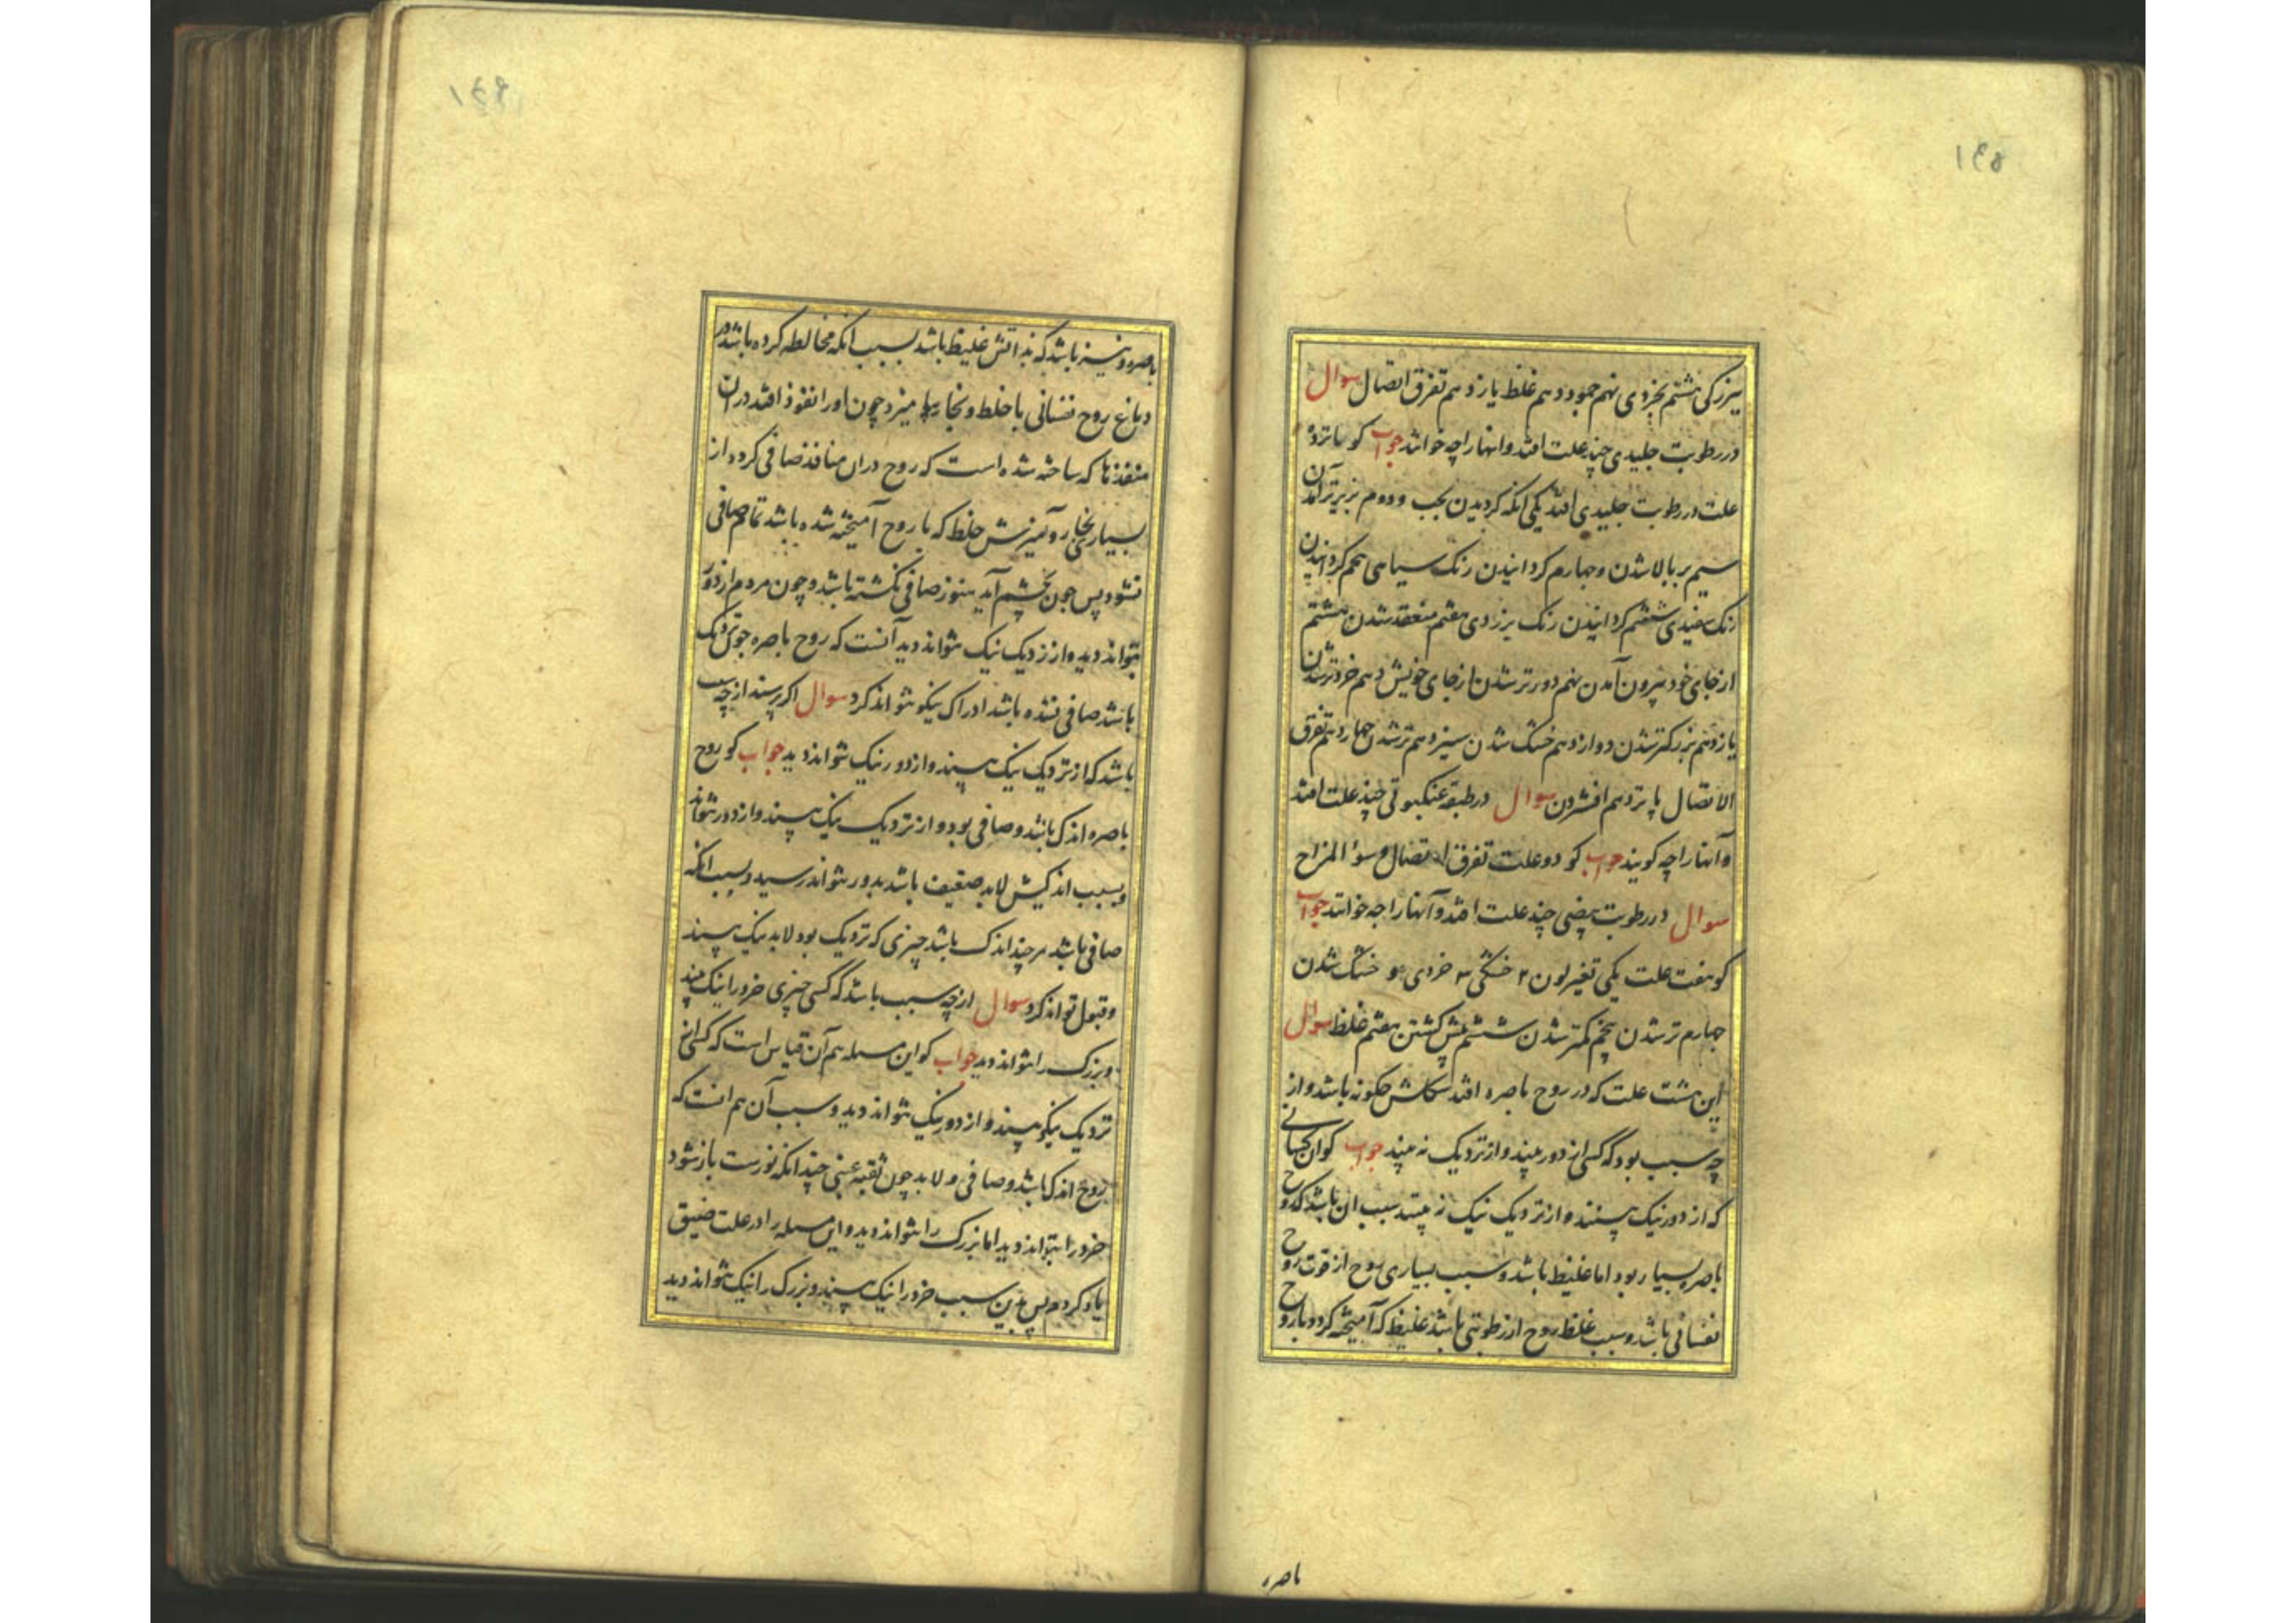 ۱۴۵
ببزرکی هشتم بخردی نهم جمود دهم غلظ یازدهم تفرق اتصال سوال
در رطوبت جلیدی چند علت افتد وانهارا چه خوانند جواب کو پانزده
علت در رطوبت جلیدی افتد یکی انکه کردیدن بجب ودوم بزیر تر آمدن
سیم بر بالا شدن وجهارم کردانیدن رنک سیاهی پنجم کردانیدن
رنک سفیدی ششم کردانیدن رنک بزردی هفتم منعقد شدن هشتم
از جای خود بیرون آمدن نهم دورتر شدن از جای خویش دهم خردتر شدن
یازدهم بزرکتر شدن دوازدهم خشک شدن سیزدهم تر شدن چهاردهم تفرق
الاتصال پانزدهم افشردن سوال در طبقه عنکبوتی چند علت افتد
وآنهارا چه کویند جواب کو دو علت تفرق اتصال وسوٴ المزاج
سوال در رطوبت بیضی چند علت افتد وآنهارا چه خوانند جواب
کو هفت علت یکی تغیر لون ۲ خشکی ۳ خردی و خشک شدن
جهارم تر شدن پنجم کمتر شدن ششم بیش کشتن هفتم غلظ سوال
این هشت علت که در روح باصره افتد شکلش چکونه باشد واز
چه سبب بود که کسی از دور بیند واز نزدیک نه بیند جواب کو ان کسانی
که از دور نیک بینند واز نزدیک نیک نه بینند سبب ان باشد که روح
باصره بسیار بود اما غلیظ باشد وسبب بسیاری روح از قوت روح
نفسانی باشد وسبب غلظ روح از رطوبتی باشد غلیظ که آمیخته کردد با روح
باصره
۱۴۶
باصره ونیز باشد که بذاتش غلیظ باشد بسبب انکه مخالطه کرده باشد در
دماغ روح نفسانی با خلط وبخارها میزد چون اورا نفوذ افتد دران
منفذها که ساخته شده است که روح دران منافذ صافی کردد از
بسیاری بخار وآمیزش خلط که با روح آمیخته شده باشد تمام صافی
نشود پس چون بچشم آید هنوز صافی نکشته باشد وچون مردم از دور
بتواند دید واز نزدیک نیک نتواند دید آنست که روح باصره چون نزدیک
باشد صافی نشده باشد ادراک نیکو نتواند کرد سوال اکر پرسند از چه سبب
باشد که از نزدیک نیک بیند واز دور نیک نتواند دید جواب کو روح
باصره اندک باشد وصافی بود واز نزدیک نیک بیند واز دور نتواند
وبسبب اندکیش لابد ضعیف باشد بدور نتواند رسید وسبب انکه
صافی باشد هر چند اندک باشد چیزی که نزدیک بود لابد نیک بیند
وقبول تواند کرد سوال از چه سبب باشد که کسی چیزی خرد را نیک بیند
وبزرک را نتواند دید جواب کو این مسله هم آن قیاس است که کسی از
نزدیک نیکو بیند واز دور نیک نتواند دید وسبب آن هم انست که
روح اندک باشد وصافی ولابد چون ثقبه عنبی چندانکه نورست باز نشود
خرد را بتواند دید اما بزرک را نتواند دید واین مسله را در علت ضیق
یاد کردم پس بدین سبب خرد را نیک بیند وبزرک را نیک نتواند دید